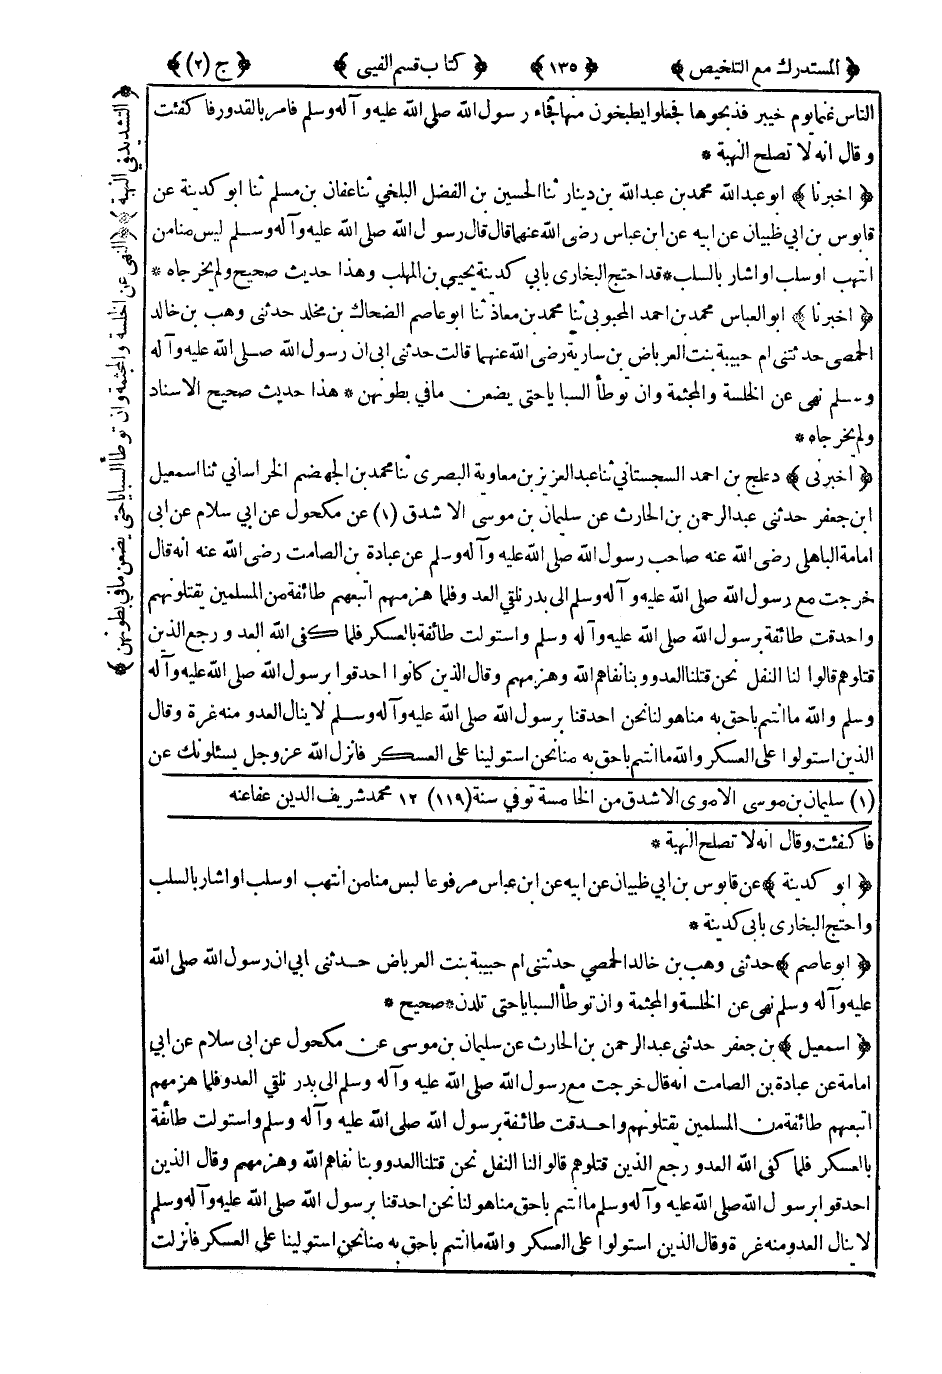 ﴿ المستدرك مع التلخيص ﴾ ﴿ ١٣٥ ﴾ ﴿ كتاب قسم الفيئ ﴾ ﴿ ج (٢) ﴾
الناس غنما يوم خيبر فذبحوها فجعلوا يطبخون منها فجاء رسول الله صلى الله عليه وآله وسلم فامر بالقدور فاكفئت
وقال انه لا تصلح النهبة *
﴿ اخبرنا ﴾ ابو عبد الله محمد بن عبد الله بن دينار ثنا الحسين بن الفضل البلخي ثنا عفان بن مسلم ثنا ابو كدينة عن
قابوس بن ابي ظبيان عن ابيه عن ابن عباس رضى الله عنهما قال قال رسول الله صلى الله عليه وآله وسلم ليس منا من
انتهب او سلب او اشار بالسلب * قد احتج البخارى بابي كدينة يحيى بن المهلب وهذا حديث صحيح ولم يخرجاه *
﴿ اخبرنا ﴾ ابو العباس محمد بن احمد المحبوبي ثنا محمد بن معاذ ثنا ابو عاصم الضحاك بن مخلد حدثني وهب بن خالد
الحمصى حدثتني ام حبيبة بنت العرباض بن سارية رضى الله عنهما قالت حدثنى ابى ان رسول الله صلى الله عليه وآله
وسلم نهى عن الخلسة والمجثمة وان توطأ السبايا حتى يضعن ما في بطونهن * هذا حديث صحيح الاسناد
ولم يخرجاه *
﴿ اخبرنى ﴾ دعلج بن احمد السجستاني ثنا عبد العزيز بن معاوية البصرى ثنا محمد بن الجهضم الخراساني ثنا اسمعيل
ابن جعفر حدثنى عبد الرحمن بن الحارث عن سليمان بن موسى الاشدق (١) عن مكحول عن ابي سلام عن ابى
امامة الباهلى رضى الله عنه صاحب رسول الله صلى الله عليه وآله وسلم عن عبادة بن الصامت رضى الله عنه انه قال
خرجت مع رسول الله صلى الله عليه وآله وسلم الى بدر نلقي العدو فلما هزمهم اتبعهم طائفة من المسلمين يقتلونهم
واحدقت طائفة برسول الله صلى الله عليه وآله وسلم واستولت طائفة بالعسكر فلما كفى الله العدو ورجع الذين
قتلوهم قالوا لنا النفل نحن قتلنا العدو وبنا نفاهم الله وهزمهم وقال الذين كانوا احدقوا برسول الله صلى الله عليه وآله
وسلم والله ما انتم باحق به منا هو لنا نحن احدقنا برسول الله صلى الله عليه وآله وسلم لا ينال العدو منه غرة وقال
الذين استولوا على العسكر والله ما انتم باحق به منا نحن استولينا على العسكر فانزل الله عز وجل يسئلونك عن
(١) سليمان بن موسى الاموى الاشدق من الخامسة توفي سنة (١١٩) ١٢ محمد شريف الدين عفا عنه
فاكفئت وقال انه لا تصلح النهبة *
﴿ ابو كدينة ﴾ عن قابوس بن ابي ظبيان عن ابيه عن ابن عباس مرفوعا ليس منا من انتهب او سلب او اشار بالسلب
واحتج البخارى بابى كدينة *
﴿ ابو عاصم ﴾ حدثنى وهب بن خالد الحمصي حدثتنى ام حبيبة بنت العرباض حدثنى ابي ان رسول الله صلى الله
عليه وآله وسلم نهى عن الخلسة والمجثمة وان توطأ السبايا حتى تلدن * صحيح *
﴿ اسمعيل ﴾ بن جعفر حدثنى عبد الرحمن بن الحارث عن سليمان بن موسى عن مكحول عن ابى سلام عن ابي
امامة عن عبادة بن الصامت انه قال خرجت مع رسول الله صلى الله عليه وآله وسلم الى بدر نلقي العدو فلما هزمهم
اتبعهم طائفة من المسلمين يقتلونهم واحدقت طائفة برسول الله صلى الله عليه وآله وسلم واستولت طائفة
بالعسكر فلما كفى الله العدو رجع الذين قتلوهم قالوا لنا النفل نحن قتلنا العدو وبنا نفاهم الله وهزمهم وقال الذين
احدقوا برسول الله صلى الله عليه وآله وسلم ما انتم باحق منا هو لنا نحن احدقنا برسول الله صلى الله عليه وآله وسلم
لا ينال العدو منه غرة وقال الذين استولوا على العسكر والله ما انتم باحق به منا نحن استولينا على العسكر فانزلت
﴿ التشديد في النهبة ﴾ ﴿ النهى عن الخلسة والمجثمة وان توطأ السبايا حتى يضعن ما في بطونهن ﴾